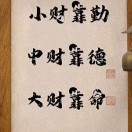 小财靠勤
中财靠德
大财靠命